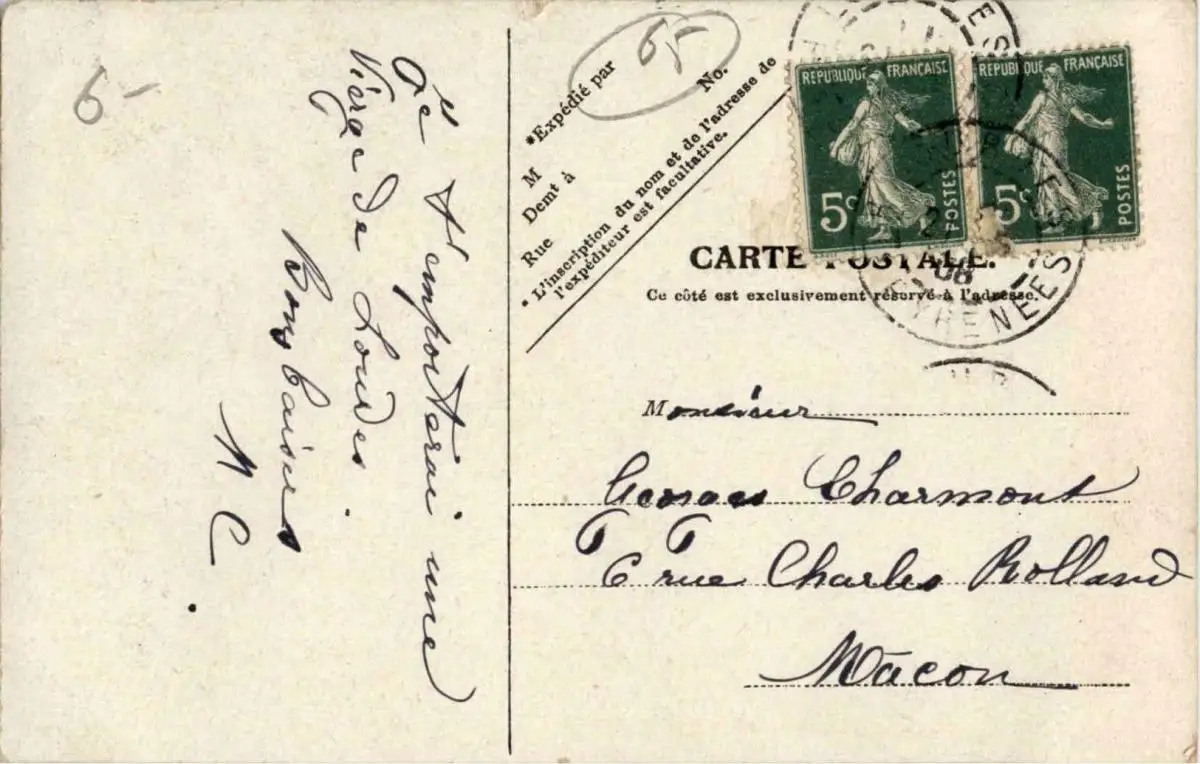 6-
Je t'emporterai une
Vierge de Lourdes.
Bons baisers
M C.
65-
*Expédié par
No.
M
Demt à
Rue
* L'inscription du nom et de l'adresse de
l'expéditeur est facultative.
RÉPUBLIQUE FRANÇAISE
5c
POSTES
RÉPUBLIQUE FRANÇAISE
5c
POSTES
08
PYRENEES
CARTE POSTALE.
Ce côté est exclusivement réservé à l'adresse.
Monsieur
Georges Charmont
rue Charles Rolland
Mâcon